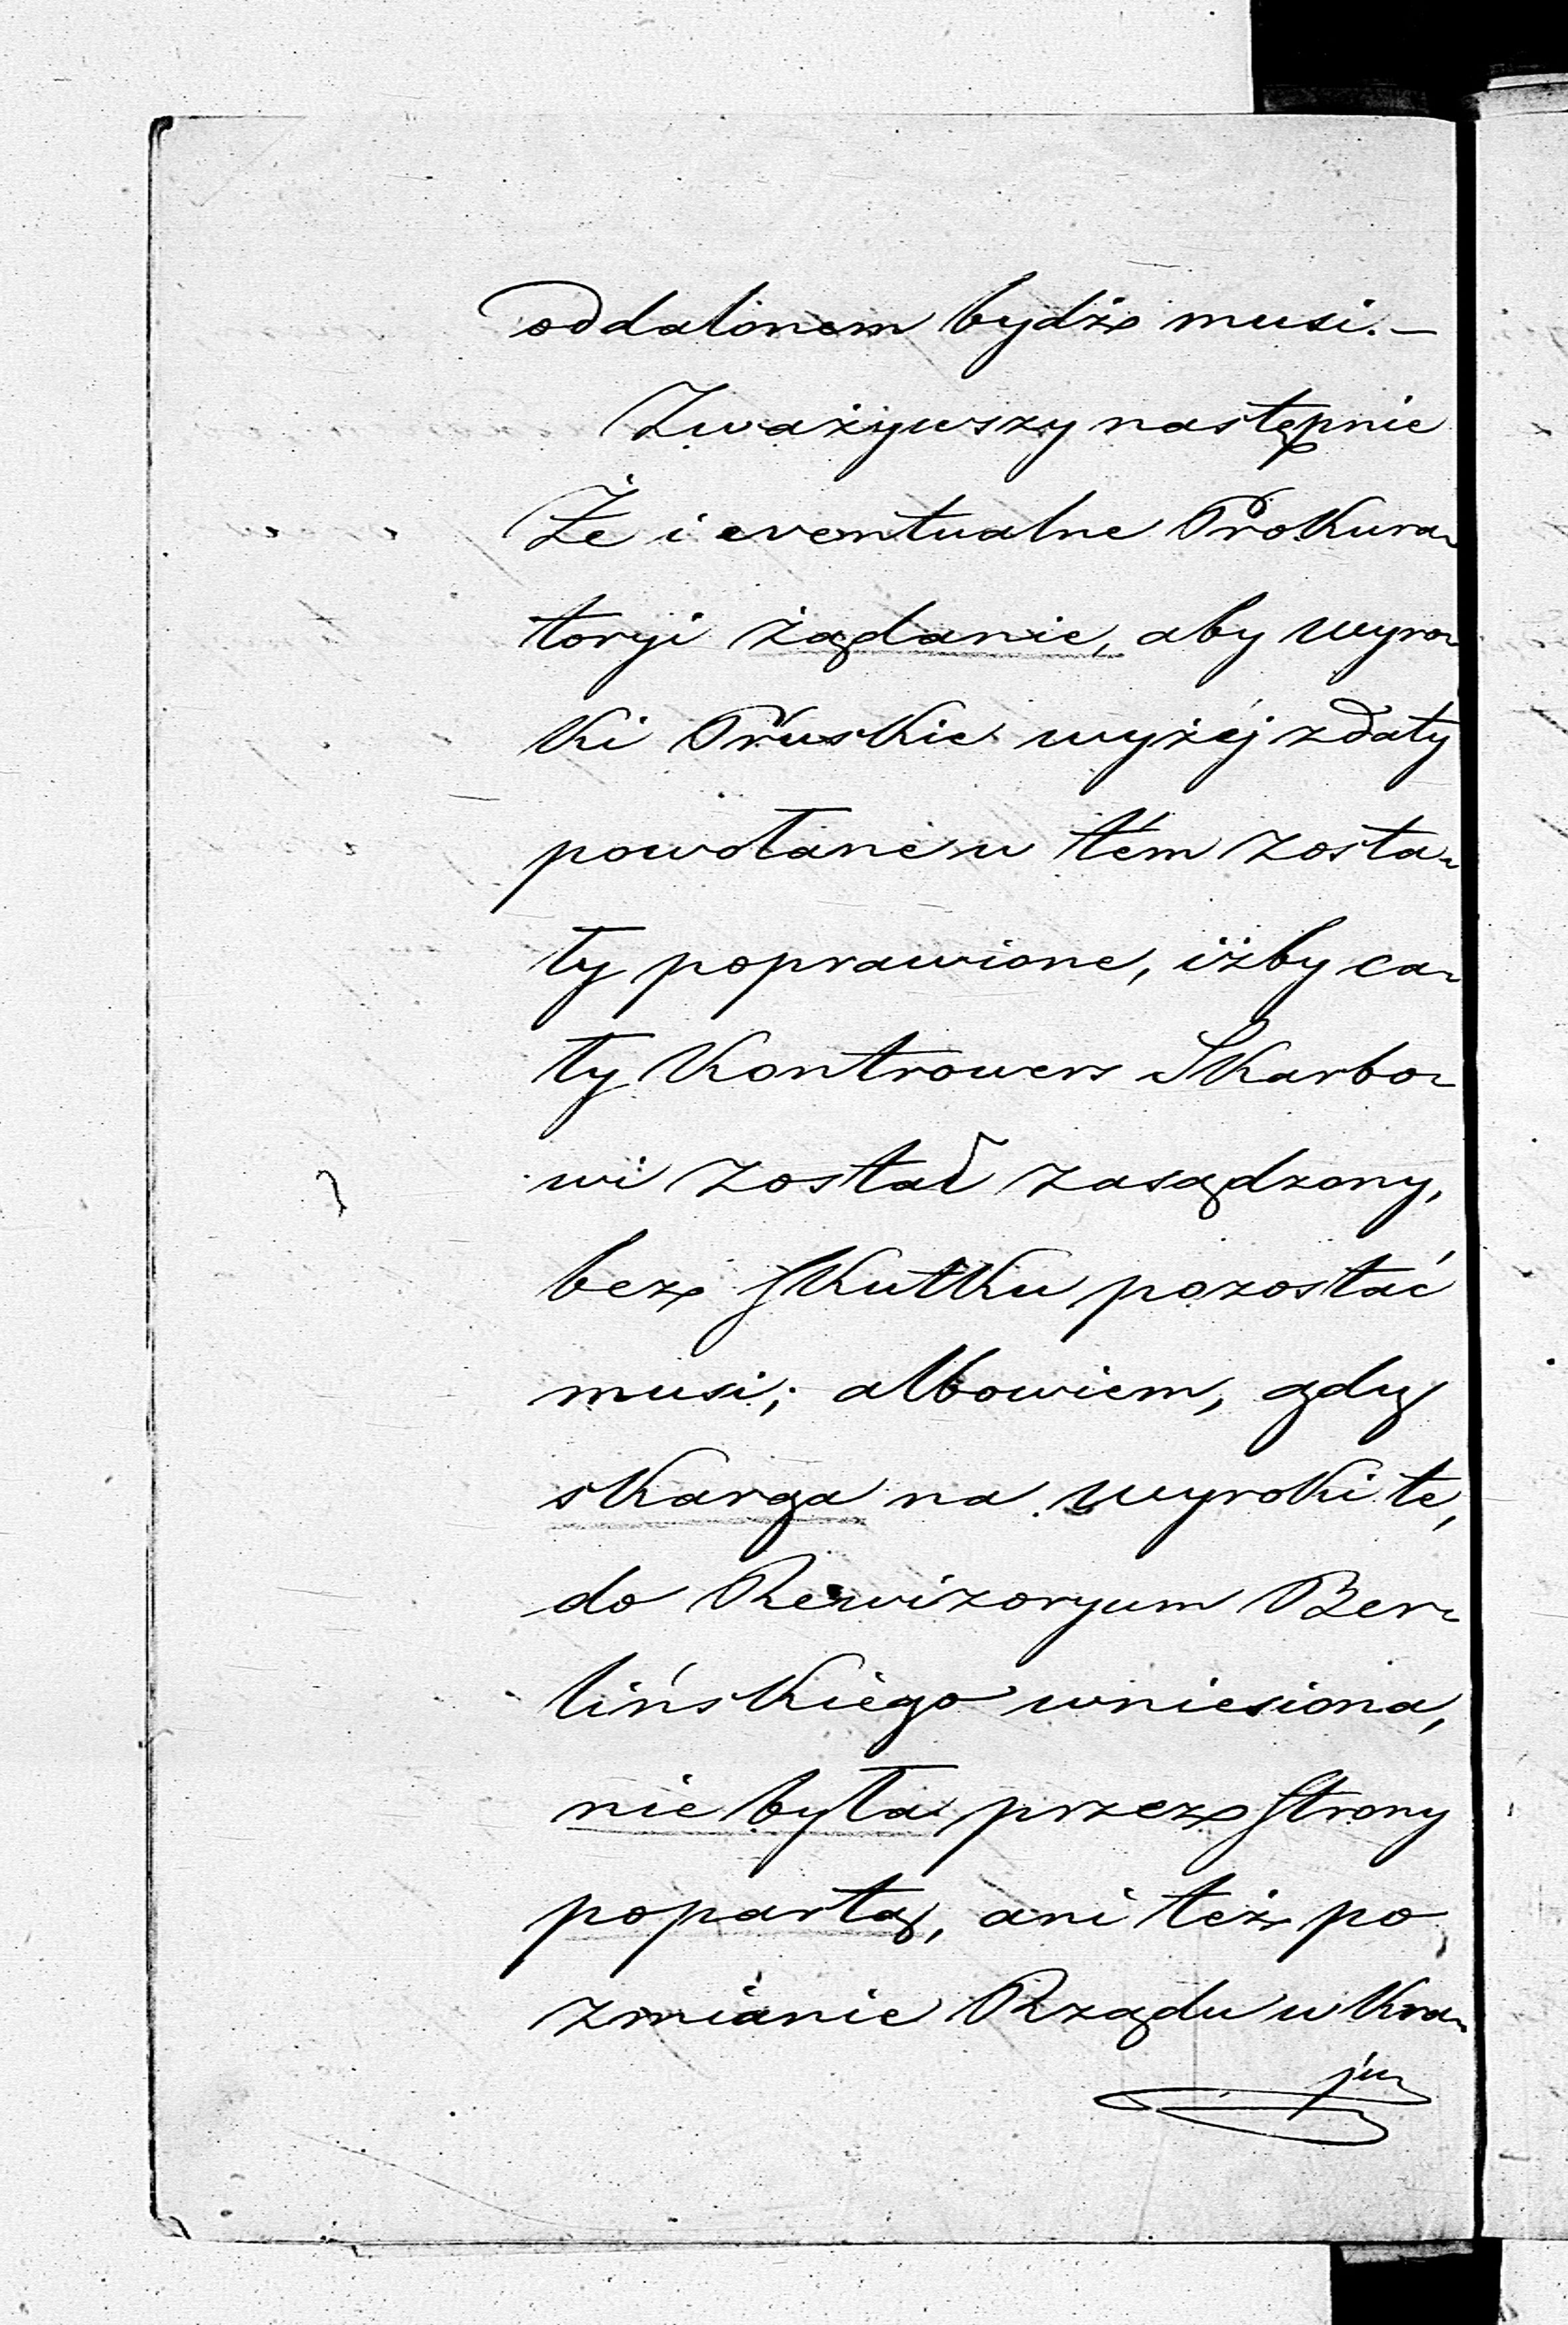 oddalonem bydź musi.—
Zważywszy następnie
Że i eventualne Prokura-
toryi żądanie, aby wyro-
ki Pruskie wyżéj z daty
powołane w tém zosta-
ły poprawione, iżby ca-
ły Kontrowers Skarbo-
wi został zasądzony,
bez skutku pozostać
musi; albowiem, gdy
skarga na wyroki te,
do Rewizoryum Ber-
lińskiego wniesiona,
nie była przez strony
popartą, ani też po
zmianie Rządu w Kra-
ju